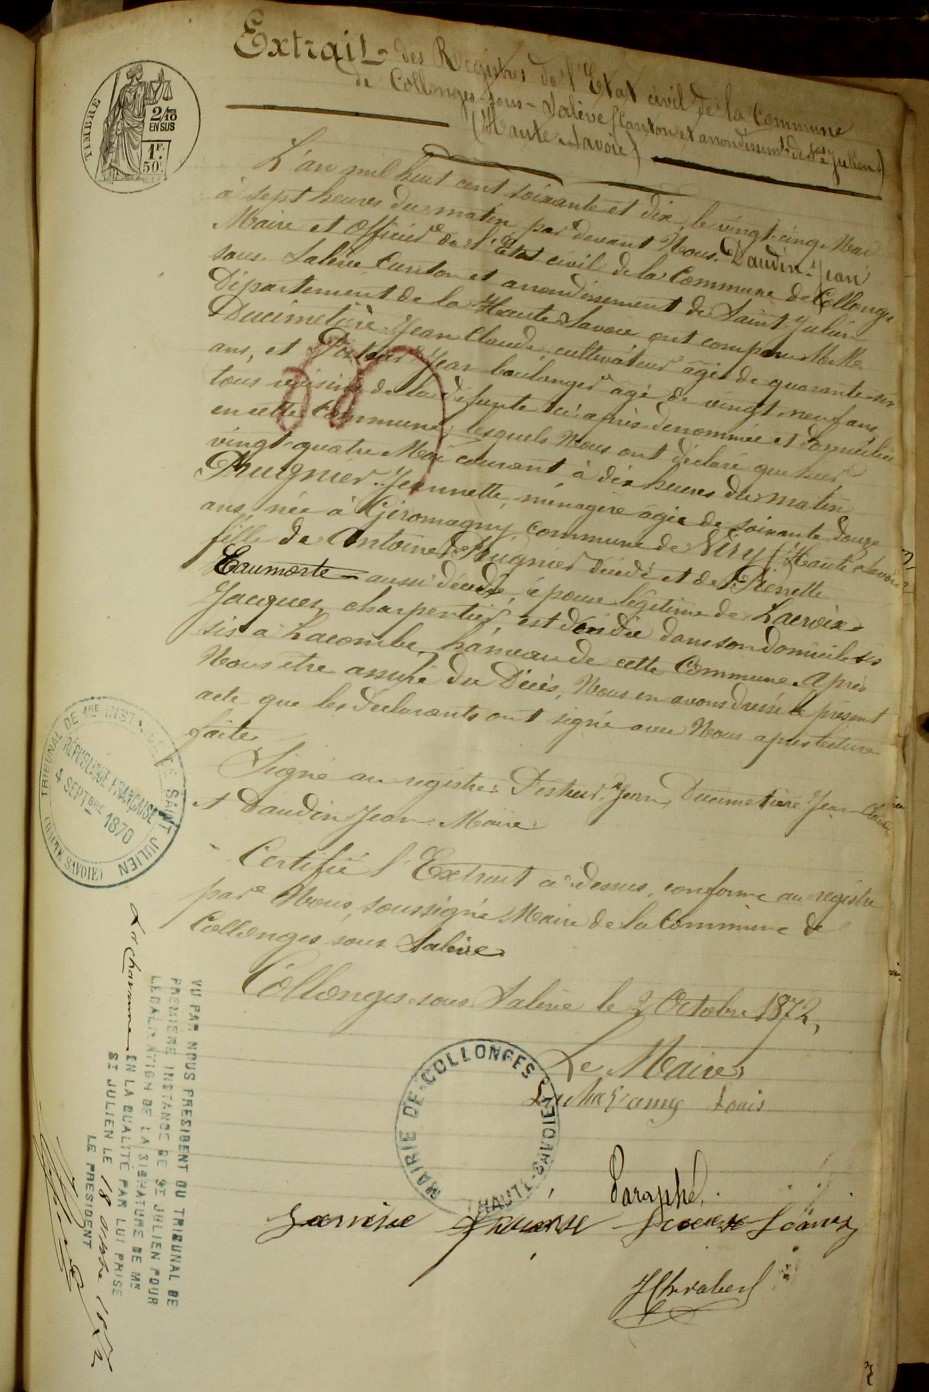 Extrait des Registres de l'Etat civil de la Commune
de Collonges-sous-Salève (Canton et arrondissemt de St Julien)
(Haute-Savoie)
TIMBRE
2/10
EN SUS
1F.
50c.
L'an mil huit cent soixante et dix, le vingt-cinq Mai
à sept heures du matin par devant Nous Daudin Jean
Maire et Officier de l'Etat civil de la Commune de Collonges
sous Salève Canton et arrondissement de Saint Julien
Département de la Haute Savoie ont comparu M.M.
Ducimetière Jean Claude cultivateur âgé de quarante-six
ans, et Jean boulanger âgé de vingt-neuf ans,
tous voisins de la défunte ci-après dénommée et domiciliés
en cette Commune, lesquels Nous ont déclaré que hier
vingt-quatre Mai courant à dix heures du matin
Prugnier Jeannette, ménagère âgée de soixante douze
ans, née à Giromagny, Commune de Viry (Haute Savoie)
fille de Antoine Prugnier décédé et de Pernette
Eaumorte aussi décédée, épouse légitime de Lacroix
Jacques, charpentier, est décédée dans son domicile
sis à Lacombe, hameau de cette Commune. Après
Nous être assuré du Décès, Nous en avons dressé le présent
acte que les déclarants ont signé avec Nous après lecture
faite.
Signé au registre: Jean, Ducimetière Jean Claude
et Daudin Jean Maire.
Certifié l'Extrait ci-dessus, conforme au registre
par Nous, soussigné Maire de la Commune de
Collonges sous Salève
Collonges-sous-Salève le 2 Octobre 1872,
Le Maire
Lacharrme Louis
TRIBUNAL DE 1RE INST. DE SAINT JULIEN
(HAUTE SAVOIE)
RÉPUBLIQUE FRANÇAISE
4 SEPTBRE 1870
MAIRIE DE COLLONGES
(HAUTE-SAVOIE)
VU PAR NOUS PRESIDENT DU TRIBUNAL DE
PREMIERE INSTANCE DE ST JULIEN POUR
LEGALISATION DE LA SIGNATURE DE MR
Lacharrme EN LA QUALITÉ PAR LUI PRISE
ST JULIEN LE 18 octobre 1872
LE PRESIDENT
Paraphé.